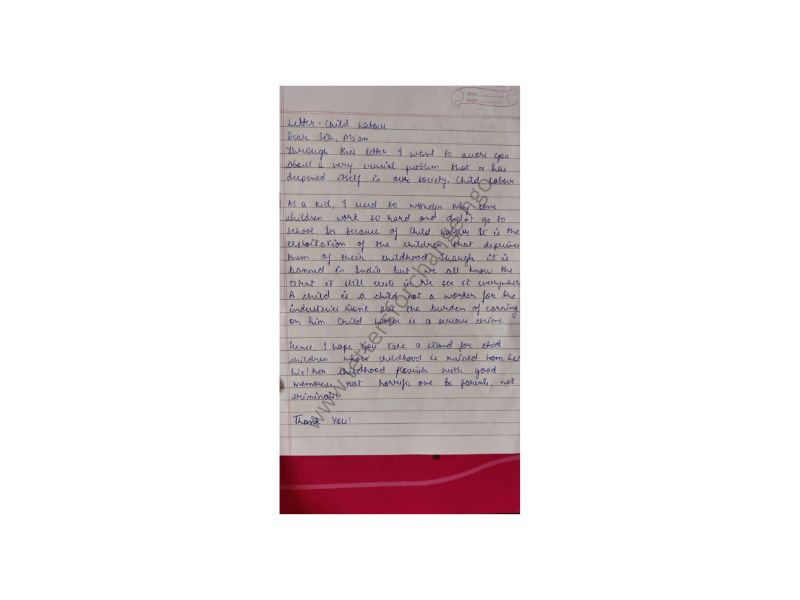 Date
Page
Letter - Child Labour
Dear Sir, Ma'am
Through this letter I want to aware you
about a very crucial problem that has
deepened itself in our society. Child Labour
As a kid, I used to wonder why some
children work so hard and didn't go to
school because of Child Labour It is the
exploitation of the children that deprives
them of their childhood Though it is
banned in India but we all know the
extent it still exists in We see it everywhere
A child is a child not a worker for the
industries Don't put the burden of earning
on him Child Labour is a serious crime.
Hence, I hope you take a stand for
children whose childhood is ruined Let
his/her childhood flourish with good
memories, not horrific one Be parents, not
criminals
Thank You!
www.lettersforchange.ngo